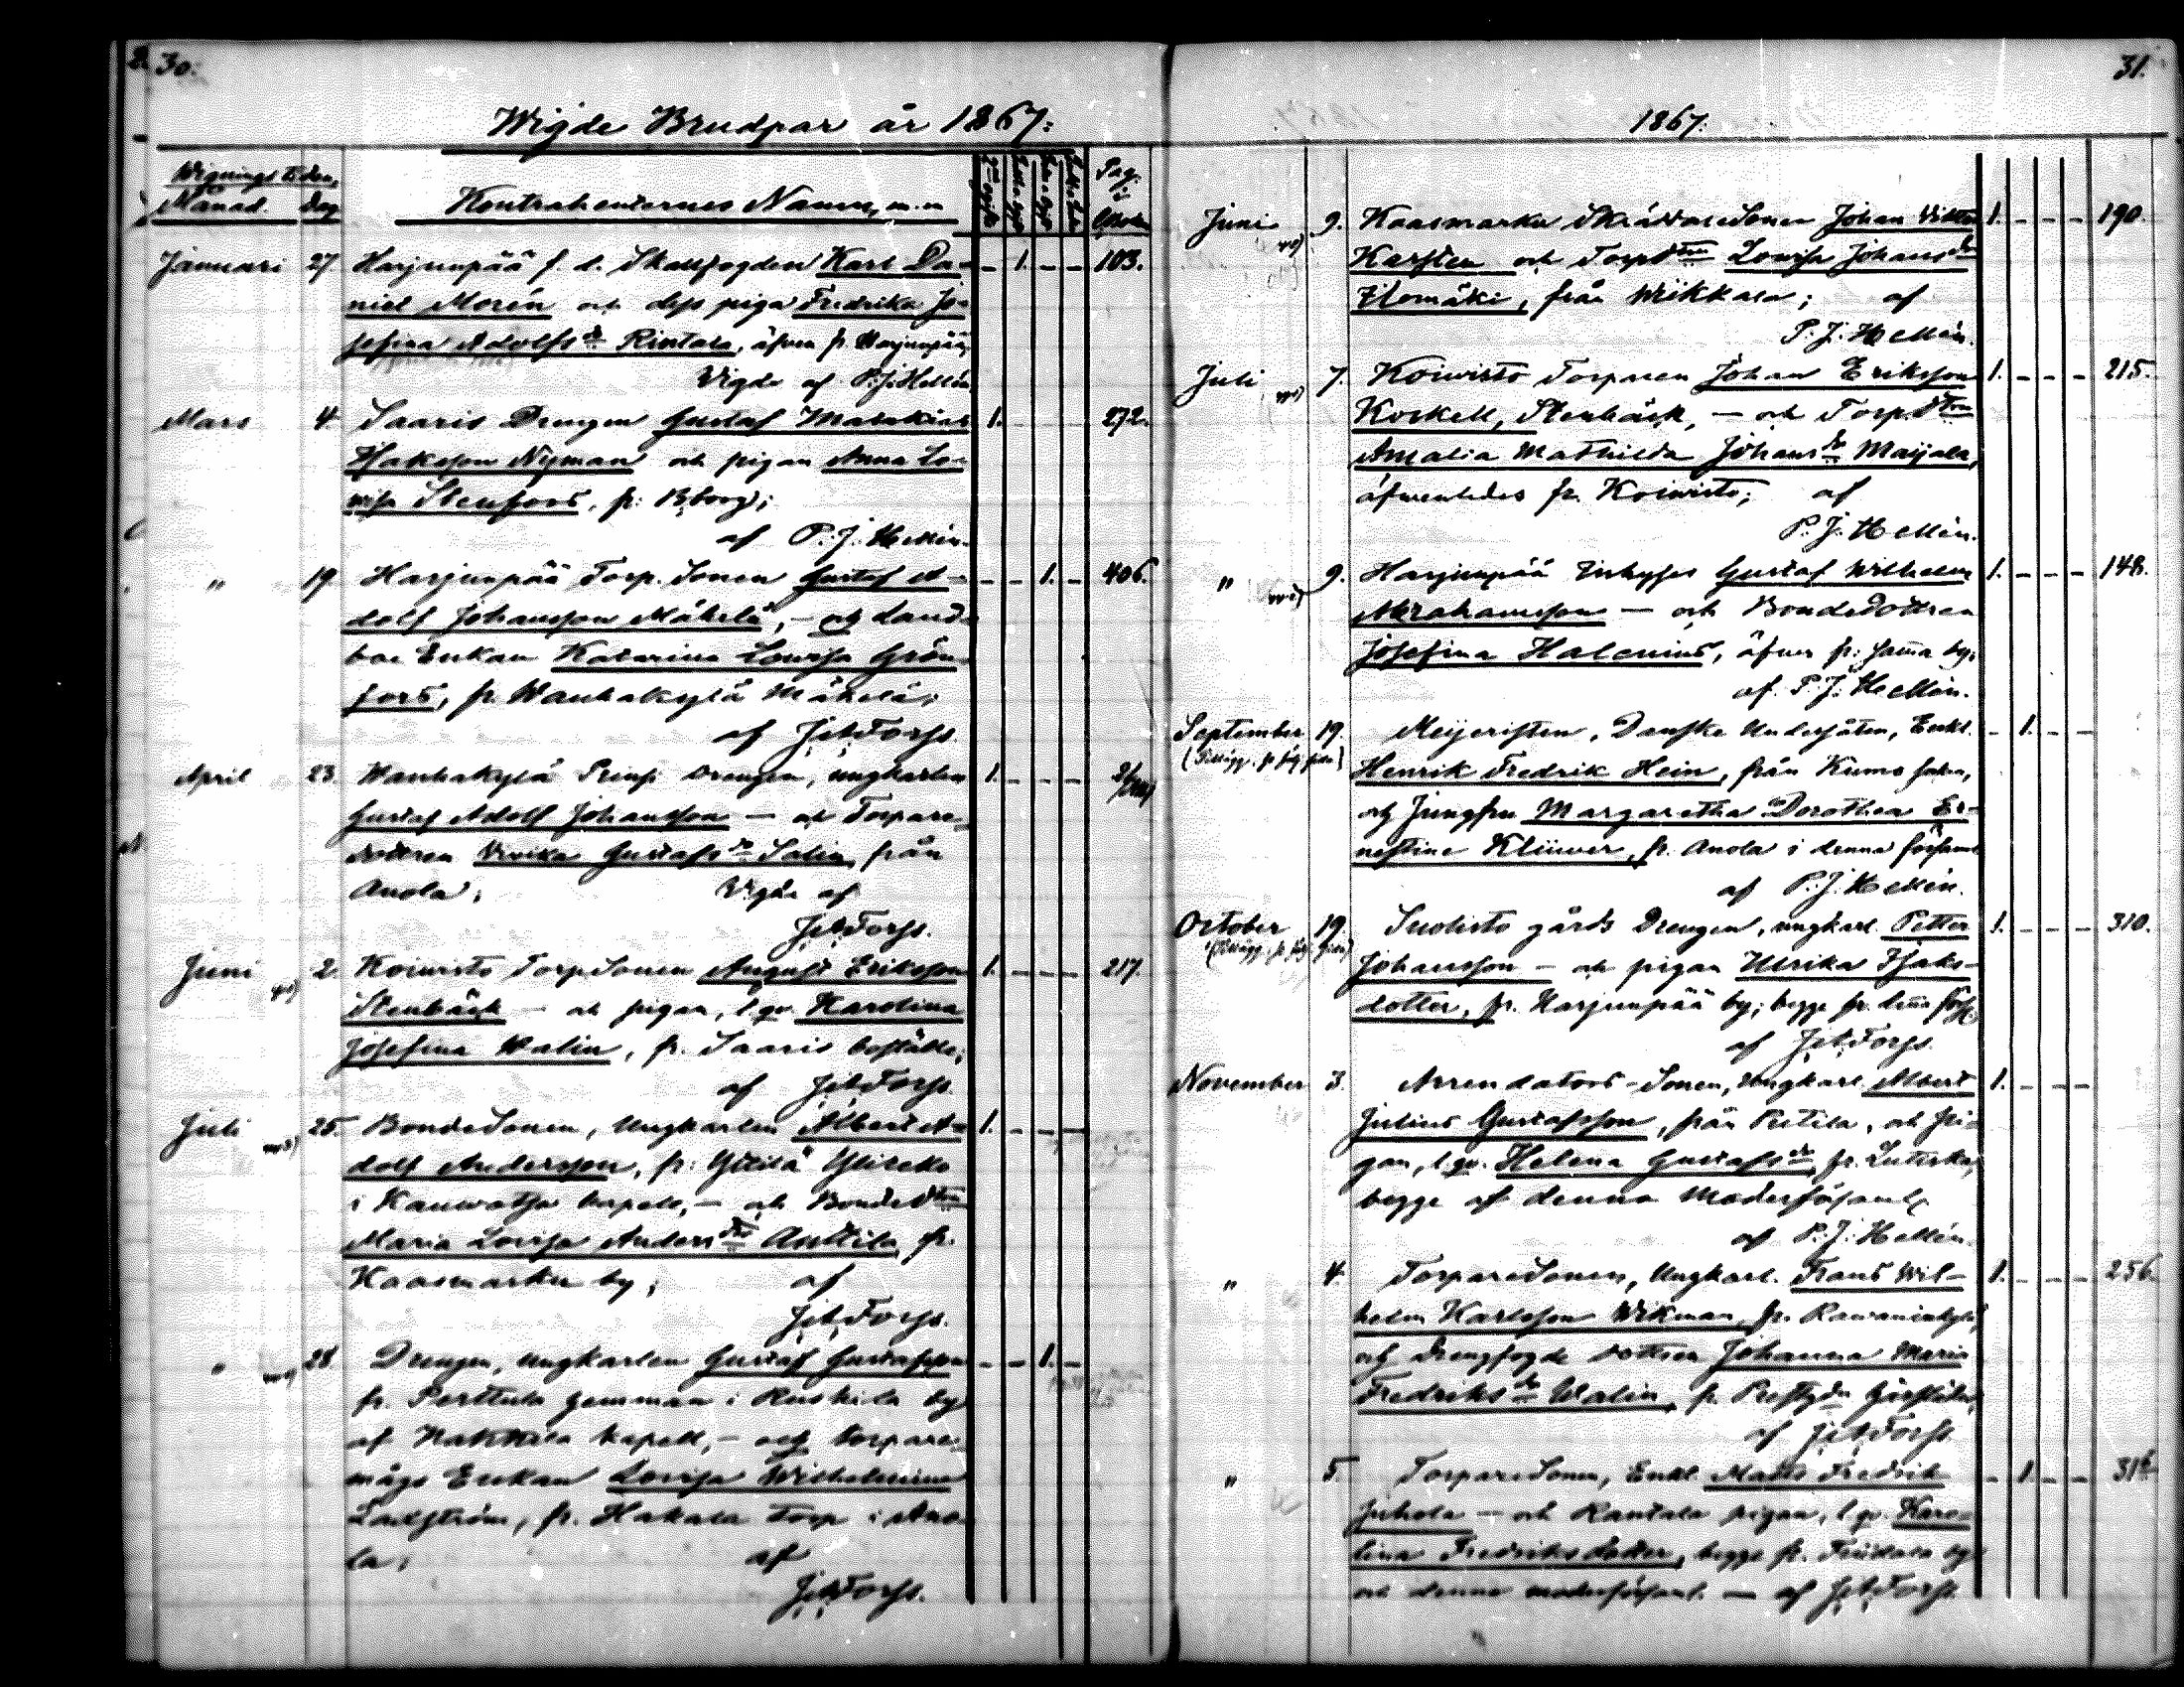 30.
Wigde Brudpar år 1867.
Wignings tiden,
Månad. Dag
Kontrahenternes Namn, m. m
Pag. i
Januari 27. Harjunpää f. d. Skallfogden Karl Da- - 1. - - 103.
niel Morén och dess piga Fredrika Jo-
sefina Adolfs dr Rintala, äfven fr. Harjunpää,
Vigde af P. J. Hellén
Mars 4. Saaris Drengen Gustaf Malakias 1. 272.
Isaksson Nyman och pigan Anna Lo-
wisa Stenfors, fr. Bborg;
af P. J. Hellén.
" 19. Harjunpää Torp. Sonen Gustaf A- - - 1. - 406.
dolf Johansson Mäkelä, - och Land-
boe Enkan Katarina Lowisa Grön-
fors, fr. Wanhakylä Mäkelä;
af
April 23. Wanhakylä Drengen, ungkarlen 1. - - -
Gustaf Adolf Johansson - och Torpare-
dottren Vivika Gustafs dr Salin, från
Anola; Vigde af
Juni 2. Koiwisto TorpSonen August Eriksson 1. - - - 217.
Stenbäck - och pigan, l. qv. Karolina
Josefina Walin, fr. Saaris boställe;
af
Juli 25. BondeSonen, Ungkarlen Albert A- 1. - - -
dolf Andersson, fr. Yttilä
i Kauvatsa kapell, - och Bonded tren
Maria Lovisa Anders dtr Anttila, fr.
Kaasmarku by; af
" 28. Drengen, Ungkarlen Gustaf Gustafsson - - 1. -
fr. Perttula hemman i Ruskila by
af Nakkila kapell, - och torpare-
mågs Enkan Lovisa Wilhelmina
Lindström, fr. Hakala Torp i Ano-
la; af
31.
1867.
Juni 9. Kaasmarku SkräddareSonen Johan Viktor 1. - - - 190.
Karsten och Torpd tren Lovisa Johans dr
Ilomäki, från Wiikkala; af
P. J. Hellén.
Juli 7. Koiwisto Torparen Johan Eriksson 1. - - - 215.
Koskell, Stenbäck, - och Torp.d tren
Amalia Mathilda Johans dr Maijala,
äfvenledes fr. Koiwisto; af
P. J. Hellén.
" 9. Harjunpää Inhyses Gustaf Wilhelm 1. - - - 148.
Abrahamsson - och Bondedottren
Josefina Halenius, äfven fr. samma by;
af P. J. Hellén.
September 19. Meijeristen, Danske Undersåten, Enkl. - 1. - -
Henrik Fredrik Hein, från Kumo sokn,
och Jungfru Margaretha Dorothea Er-
nestine Klüwer, fr. Anola i denna församl.
af P. J. Hellén.
October 19. Suolisto gårds Drengen, ungkarl. Petter 1. - - - 310.
Johansson - och pigan Ulrika Isaks-
dotter, fr. Harjunpää by; begge fr. denna förs.
af
November 3. Arrendators-Sonen, Ungkarl. Albert 1. - - -
Julius Gustafsson, från Pietilä, och pi-
gan, l. qv. Helena Gustafs dr, fr.
begge af denna Moderförsaml.
af P. J. Hellén.
" 4. TorpareSonen, Ungkarl. Frans Wil- 1. - - - 256.
helm Karlsson Wikman, fr. Ravaninkylä,
och Drengfogde dottren Johanna Maria
Fredriks dr Walin, fr.
af
" 5. TorpareSonen, Enkl. Matts Fredrik - 1. - -
Juhola - och Rantala pigan, l. qv. Karo-
lina Fredriksdotter, begge fr. by
och denna moderförsaml. - af